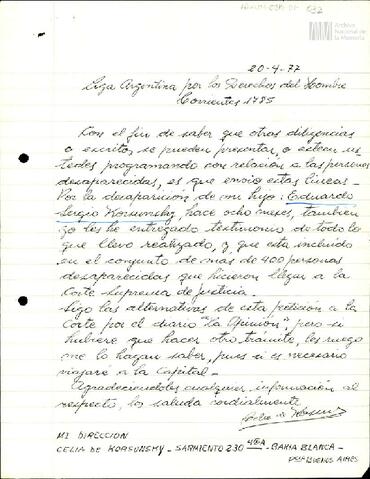 Archivo
Nacional de
la Memoria
20-4-77
Liga Argentina por los Derechos del Hombre
Corrientes 1785
Con el fin de saber que otras diligencias
o escritos se pueden presentar, o esten us-
tedes programando con relación a las personas
desaparecidas, es que envio estas lineas.
Por la desaparición de mi hijo: Eduardo
Sergio Korsunsky, hace ocho meses, tambien
yo les he entregado testimonio de todo lo
que llevo realizado, y que está incluido
en el conjunto de mas de 400 personas
desaparecidas que hicieron llegar a la
Corte Suprema de Justicia.
Sigo las alternativas de esta petición a la
Corte por el diario "La Opinión", pero si
hubiere que hacer otro tramite, les ruego
me lo hagan saber, pues si es necesario
viajaré a la Capital.
Agradeciendoles cualquier información al
respecto, los saluda cordialmente
MI DIRECCION
CELIA DE KORSUNSKY - SARMIENTO 230 4º A - BAHIA BLANCA -
BUENOS AIRES